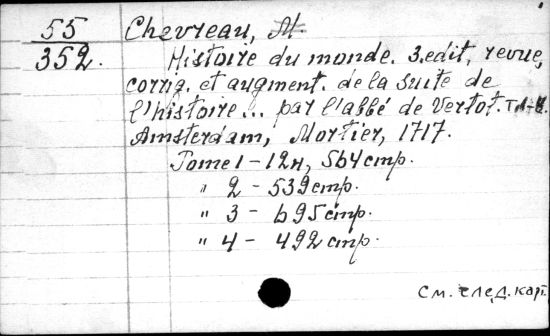 55
352.
Chevreau,
Histoire du monde. 3.edit, revue,
corrig. et augment. de la suite de
l'histoire... par l'abbé de Vertot. T.1-4.
Amsterdam, Mortier, 1717.
Tome 1 - 12н, 564 стр.
" 2 - 539 стр.
" 3 - 695 стр.
" 4 - 492 стр.
См. след. карт.